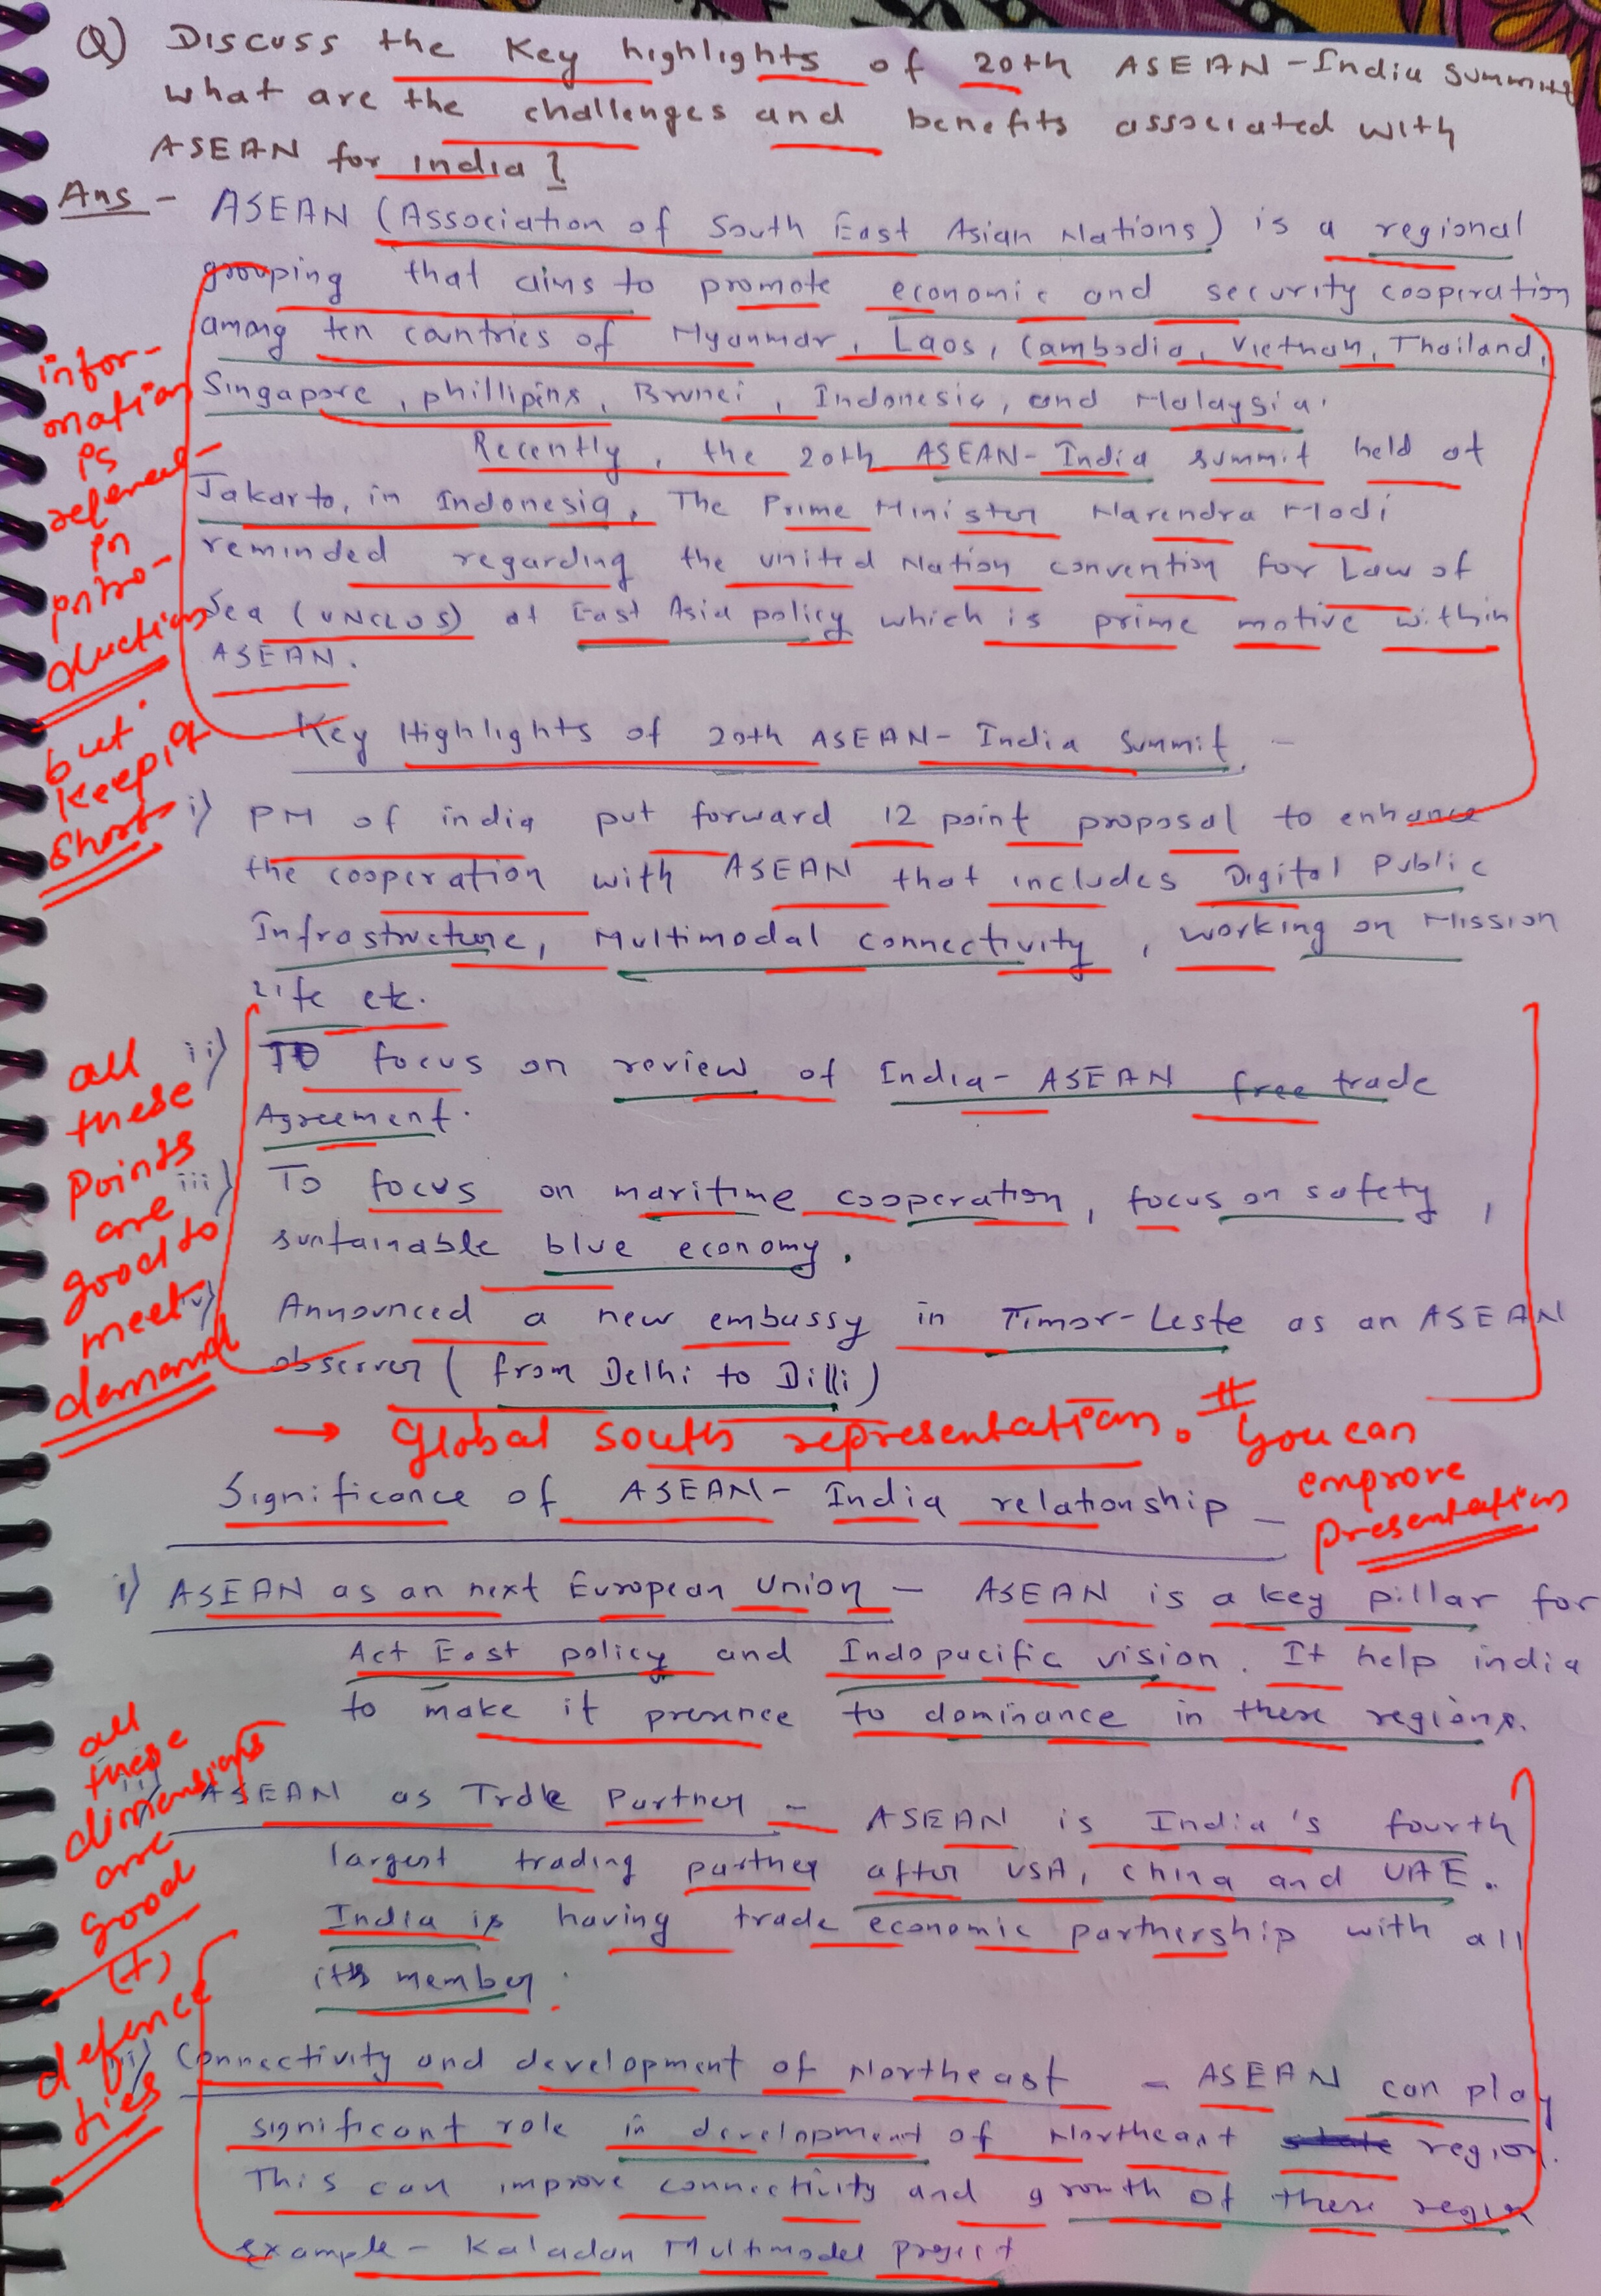 Q) Discuss the Key highlights of 20th ASEAN-India Summit
what are the challenges and benefits associated with
ASEAN for india?
Ans - ASEAN (Association of South East Asian Nations) is a regional
grouping that aims to promote economic and security cooperation
among ten countries of Myanmar, Laos, Cambodia, Vietnam, Thailand,
Singapore, phillipins, Brunei, Indonesia, and Malaysia.
Recently, the 20th ASEAN-India summit held at
Jakarta, in Indonesia. The Prime Minister Narendra Modi
reminded regarding the united Nation convention for Law of
Sea (UNCLOS) at East Asia policy which is prime motive within
ASEAN.
information
is
relevant
in
introduction
but
keep it
short
Key Highlights of 20th ASEAN-India Summit -
i) PM of india put forward 12 point proposal to enhance
the cooperation with ASEAN that includes Digital Public
Infrastructure, Multimodal connectivity, working on Mission
Life etc.
ii) To focus on review of India-ASEAN free trade
Agreement.
iii) To focus on maritime cooperation, focus on safety,
suntainable blue economy.
iv) Announced a new embassy in Timor-Leste as an ASEAN
observer (from Delhi to Dilli)
all
these
points
are
good to
meet
demand
→ Global south representation. # You can
emprove
presentation
Significance of ASEAN-India relationship -
i) ASEAN as an next European Union - ASEAN is a key pillar for
Act East policy and Indopacific vision. It help india
to make it presence to dominance in these regions.
ii) ASEAN as Trde Partner - ASEAN is India's fourth
largest trading partner after USA, china and UAE.
India is having trade economic partnership with all
its member.
iii) Connectivity and development of Northeast - ASEAN can play
significant role in development of Northeast state region.
This can improve connectivity and growth of these region
example - Kaladan Multimodel project
all
these
dimensions
are
good
(+)
defence
ties